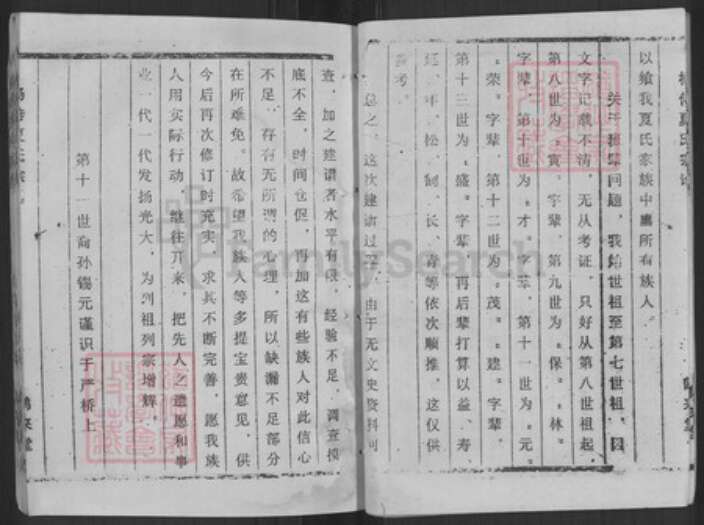 以飨我夏氏家族中庶所有族人。
关于班辈问题，我始世祖至第七世祖，因
文字记载不清，无从考证，只好从第八世祖起，
第八世为“寅”字辈、第九世为“保”“林”
字辈、第十世为“才”字辈、第十一世为“元”
“荣”字辈、第十二世为“茂”“建”字辈，
第十三世为“盛”字辈，再后辈打算以益、寿、
延、年、松、制、长、青等依次顺推，这仅供
参考。
总之，这次建谱过程，由于无文史资料可
查，加之建谱者水平有限，经验不足，调查摸
底不全，时间仓促，再加这有些族人对此信心
不足，存有无所谓的心理，所以缺漏不足部分
在所难免。故希望我族人等多提宝贵意见，供
今后再次修订时充实，求其不断完善，愿我族
人用实际行动，继往开来，把先人之遗愿和事
业一代一代发扬光大，为列祖列宗增辉。
第十一世裔孙锡元谨识于严桥上
FamilySearch